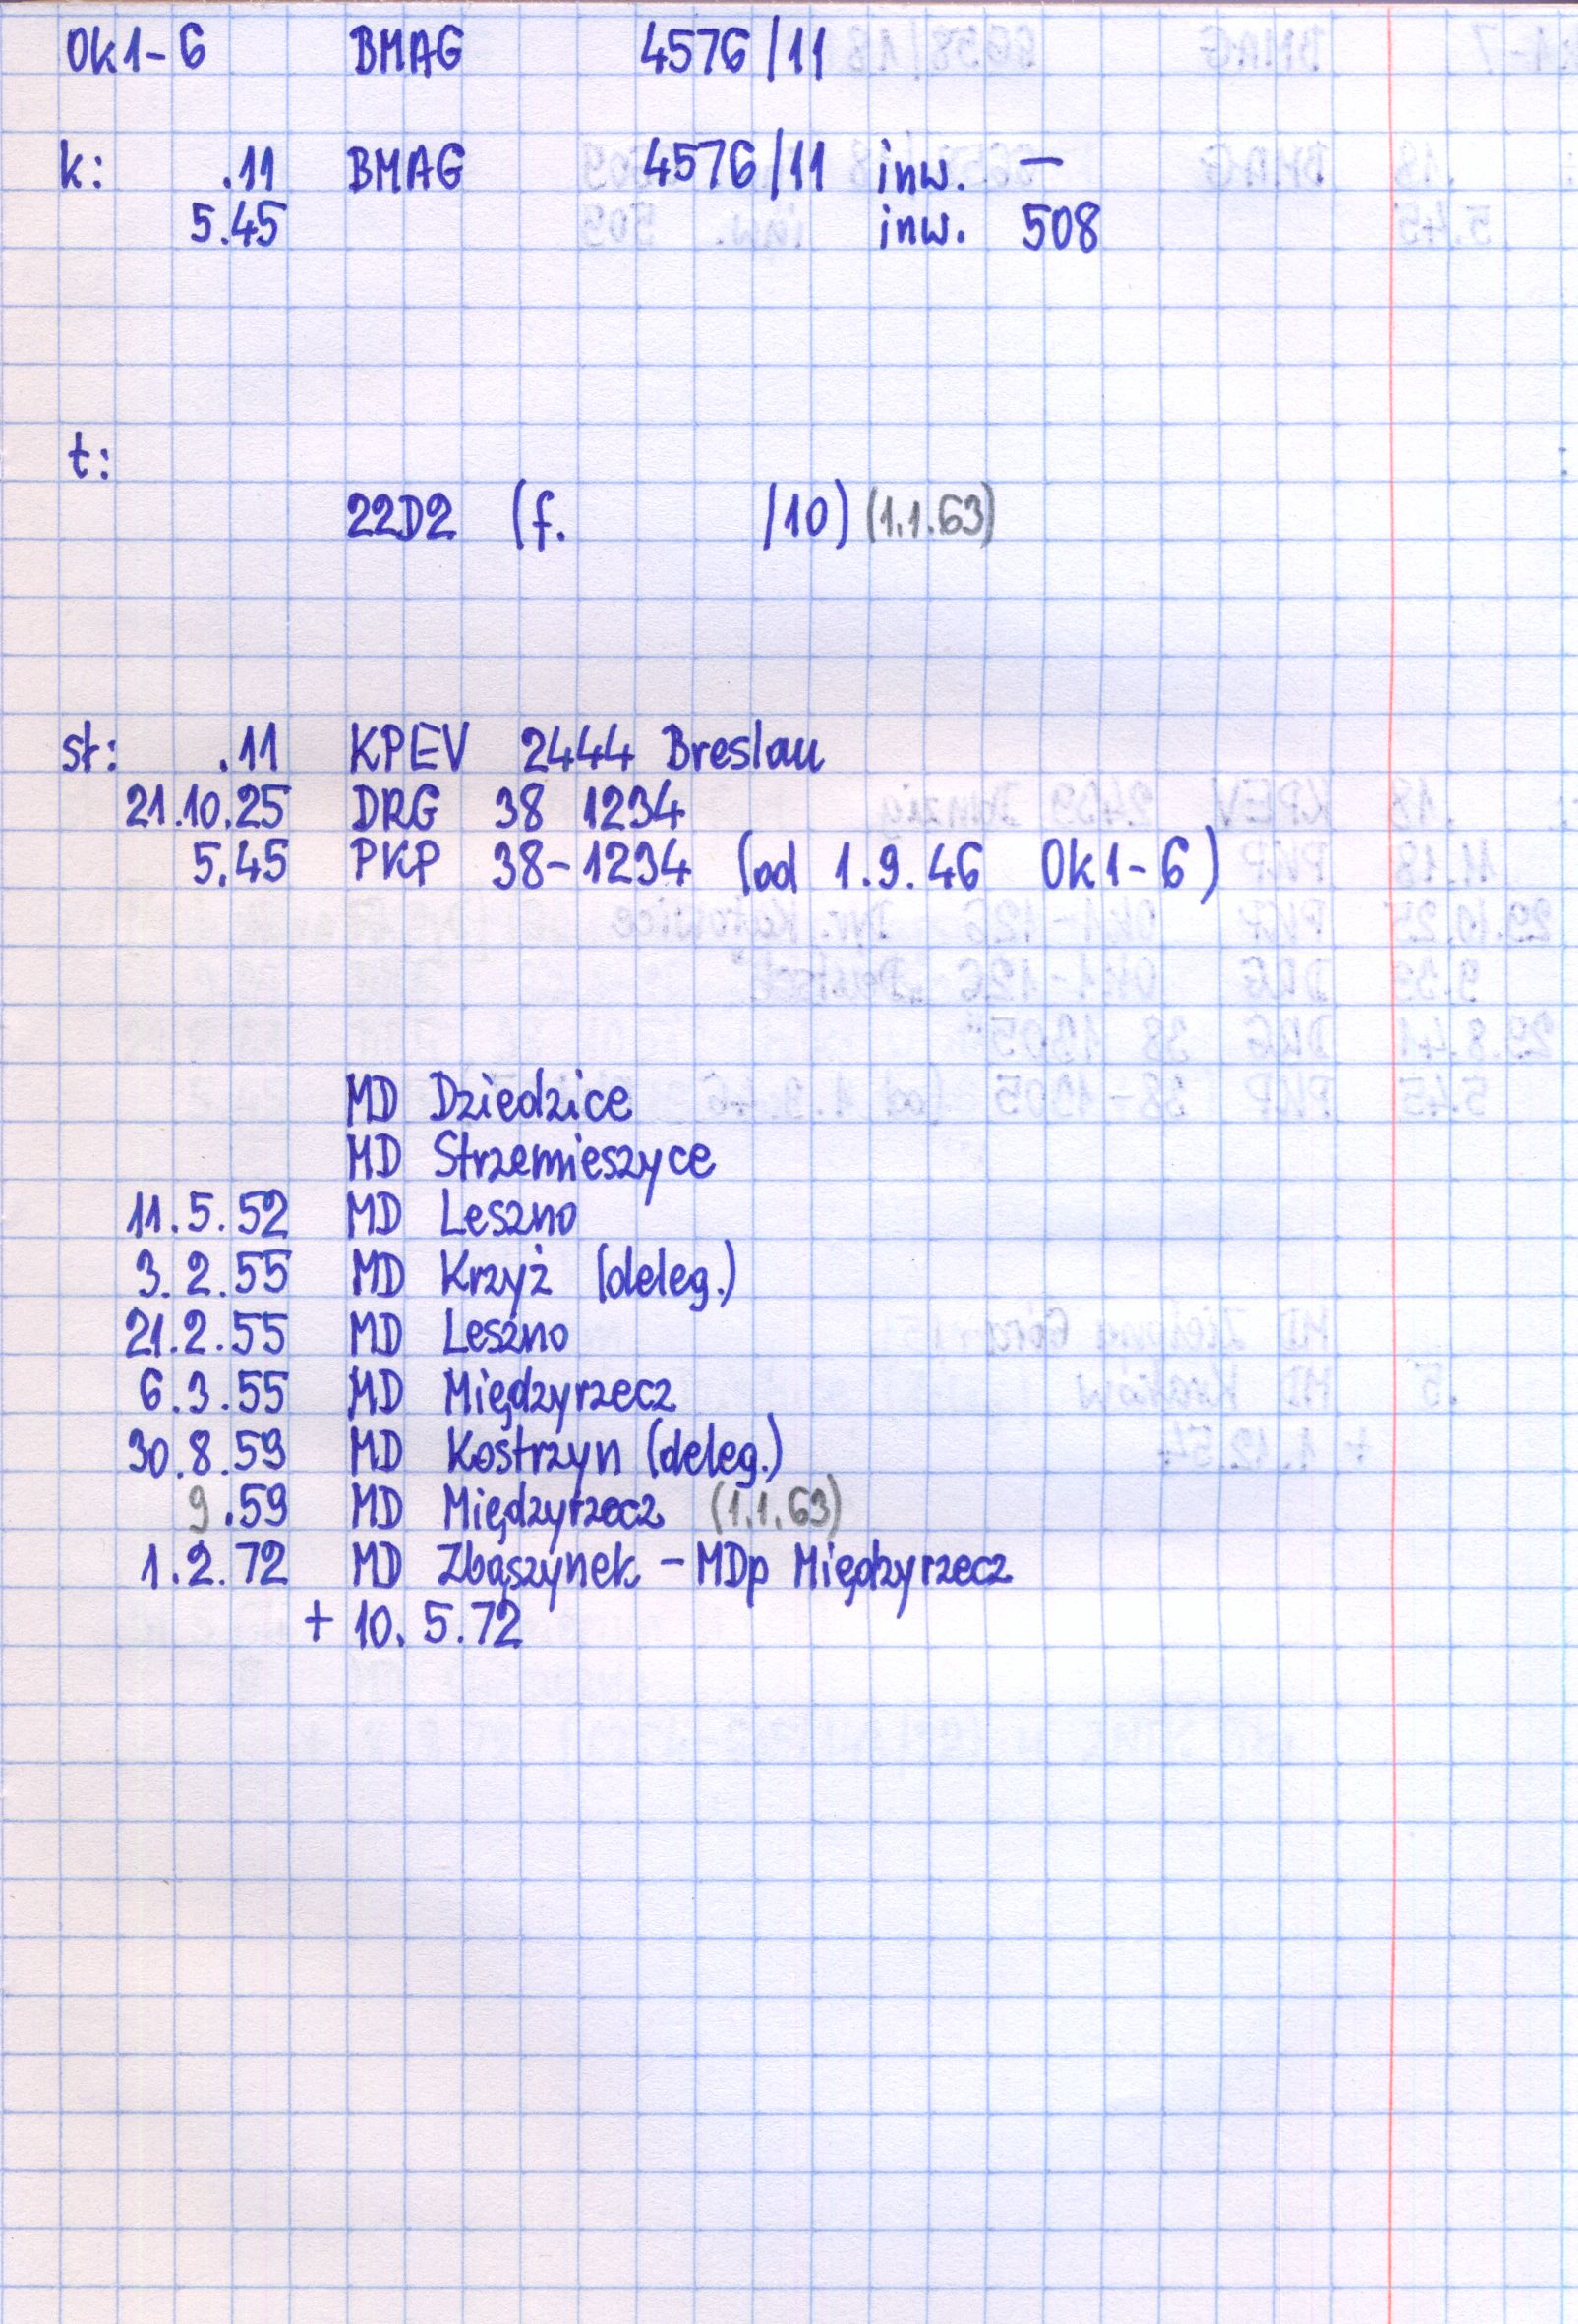 Ok1-6 BMAG 4576/11
k: .11 BMAG 4576/11 inw. —
5.45 inw. 508
t:
22D2 (f. /10) (1.1.63)
st: .11 KPEV 2444 Breslau
21.10.25 DRG 38 1234
5.45 PKP 38-1234 (od 1.9.46 Ok1-6)
MD Dziedzice
MD Strzemieszyce
11.5.52 MD Leszno
3.2.55 MD Krzyż (deleg.)
21.2.55 MD Leszno
6.3.55 MD Międzyrzecz
30.8.59 MD Kostrzyn (deleg.)
9.59 MD Międzyrzecz (1.1.63)
1.2.72 MD Zbąszynek - MDp Międzyrzecz
+ 10.5.72